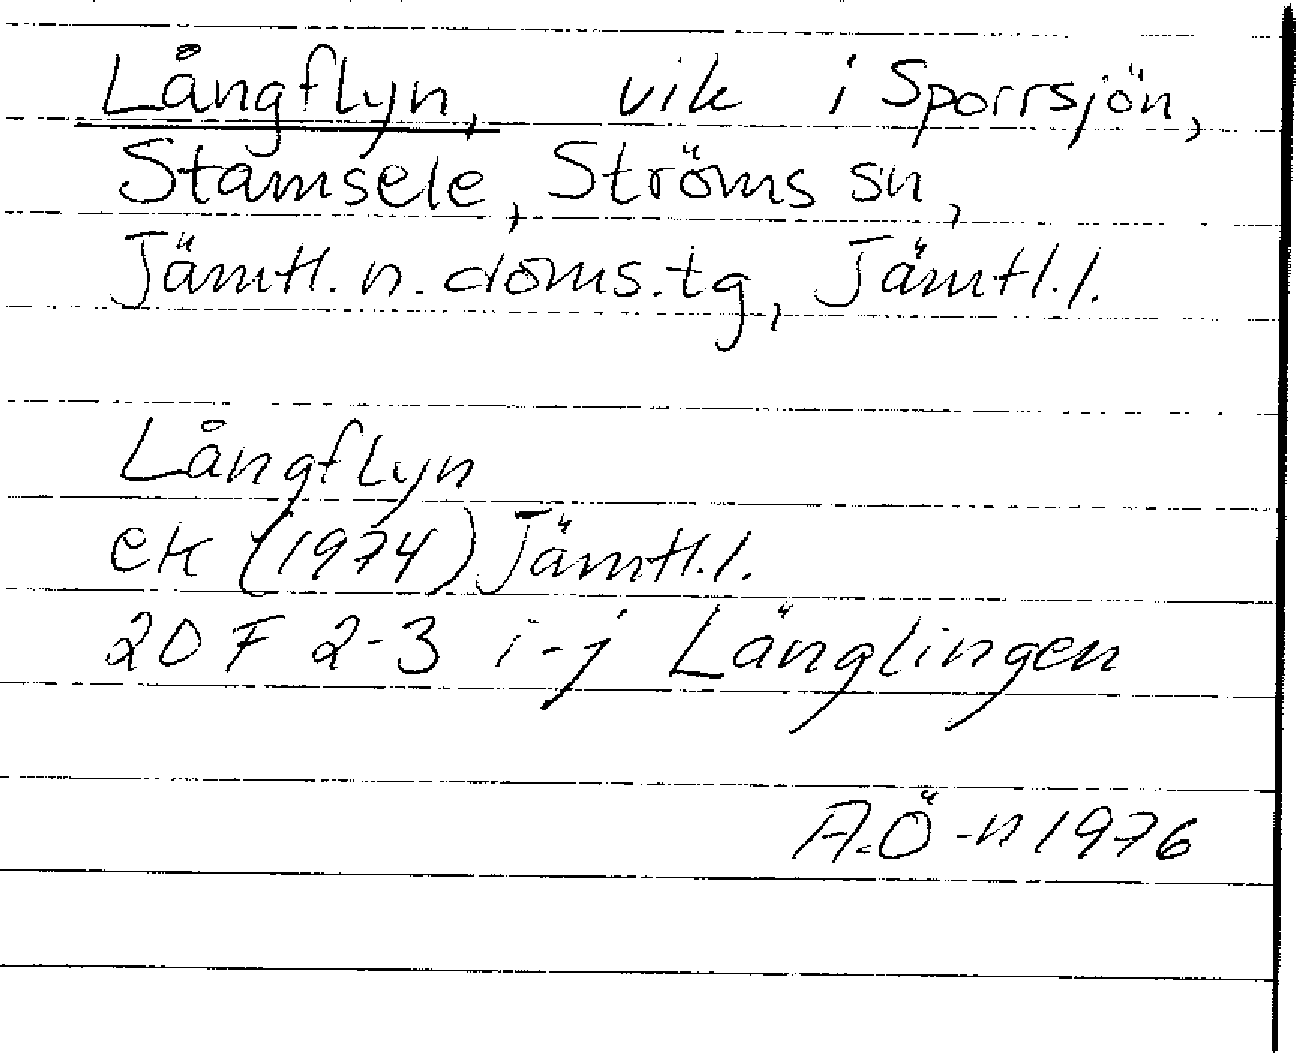 Långflyn, vik i Sporrsjön,
Stamsele, Ströms sn,
Jämtl. n. doms.tg, Jämtl.l.
Långflyn
ek (1974) Jämtl.l.
20 F 2-3 i-j Länglingen
A.Ö-n 1976